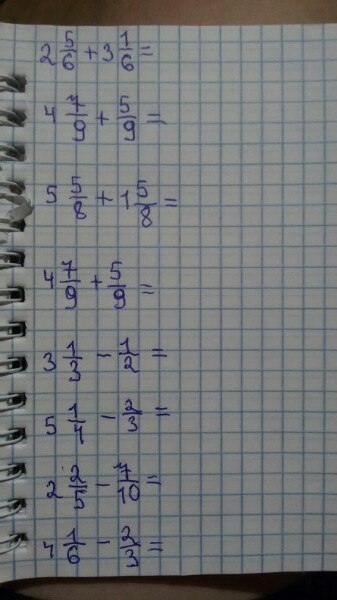 2 5/6 + 3 1/6 =
4 7/9 + 5/9 =
5 5/8 + 1 5/8 =
4 7/9 + 5/9 =
3 1/3 - 1/2 =
5 1/4 - 2/3 =
2 2/5 - 7/10 =
4 1/6 - 2/3 =